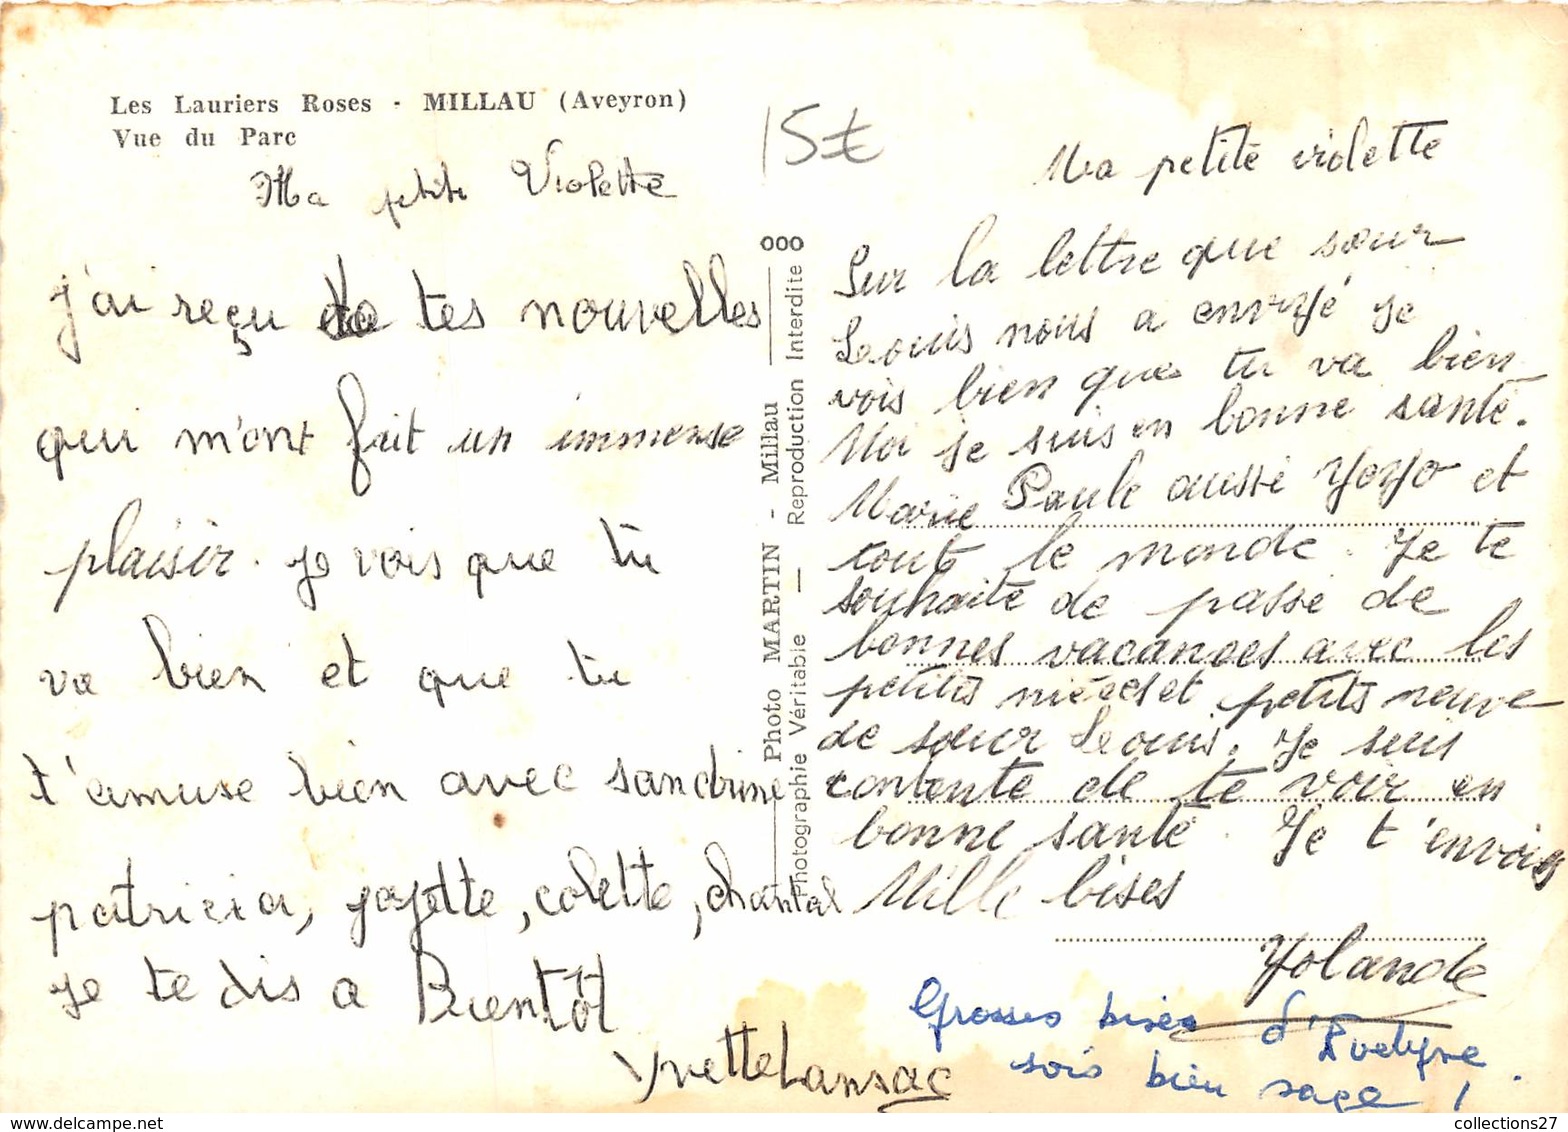 Les Lauriers Roses - MILLAU (Aveyron)
Vue du Parc
Ma petite Violette
j'ai reçu de tes nouvelles
qui m'ont fait un immense
plaisir. je vois que tu
va bien et que tu
t'amuse bien avec sandrine
patricia, jojette, colette, chantal
je te dis a Bientôt
Yvette Lansac
15€
000
Photo MARTIN - Millau
Photographie Véritable — Reproduction Interdite
Ma petite violette
Sur la lettre que sœur
Leouis nous a envoyé je
vois bien que tu va bien
Moi je suis en bonne santé.
Marie Paule aussi Yoyo et
tout le monde. Je te
souhaite de passé de
bonnes vacances avec les
petits nièces et petits neuve
de sœur Leouis. Je suis
contente de te voir en
bonne santé. Je t'envois
Mille bises
Yolande
Grosses bises d'Evelyne.
sois bien sage !
collections27